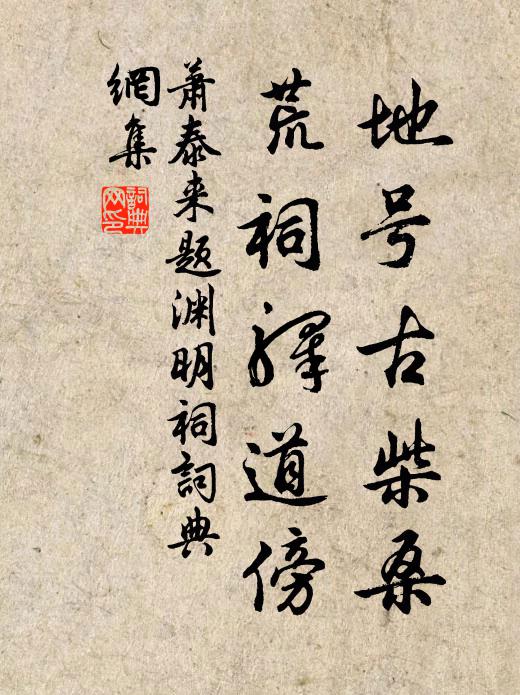 地号古柴桑
荒祠驿道傍
萧泰来题渊明祠詞典
網集
詞典网印